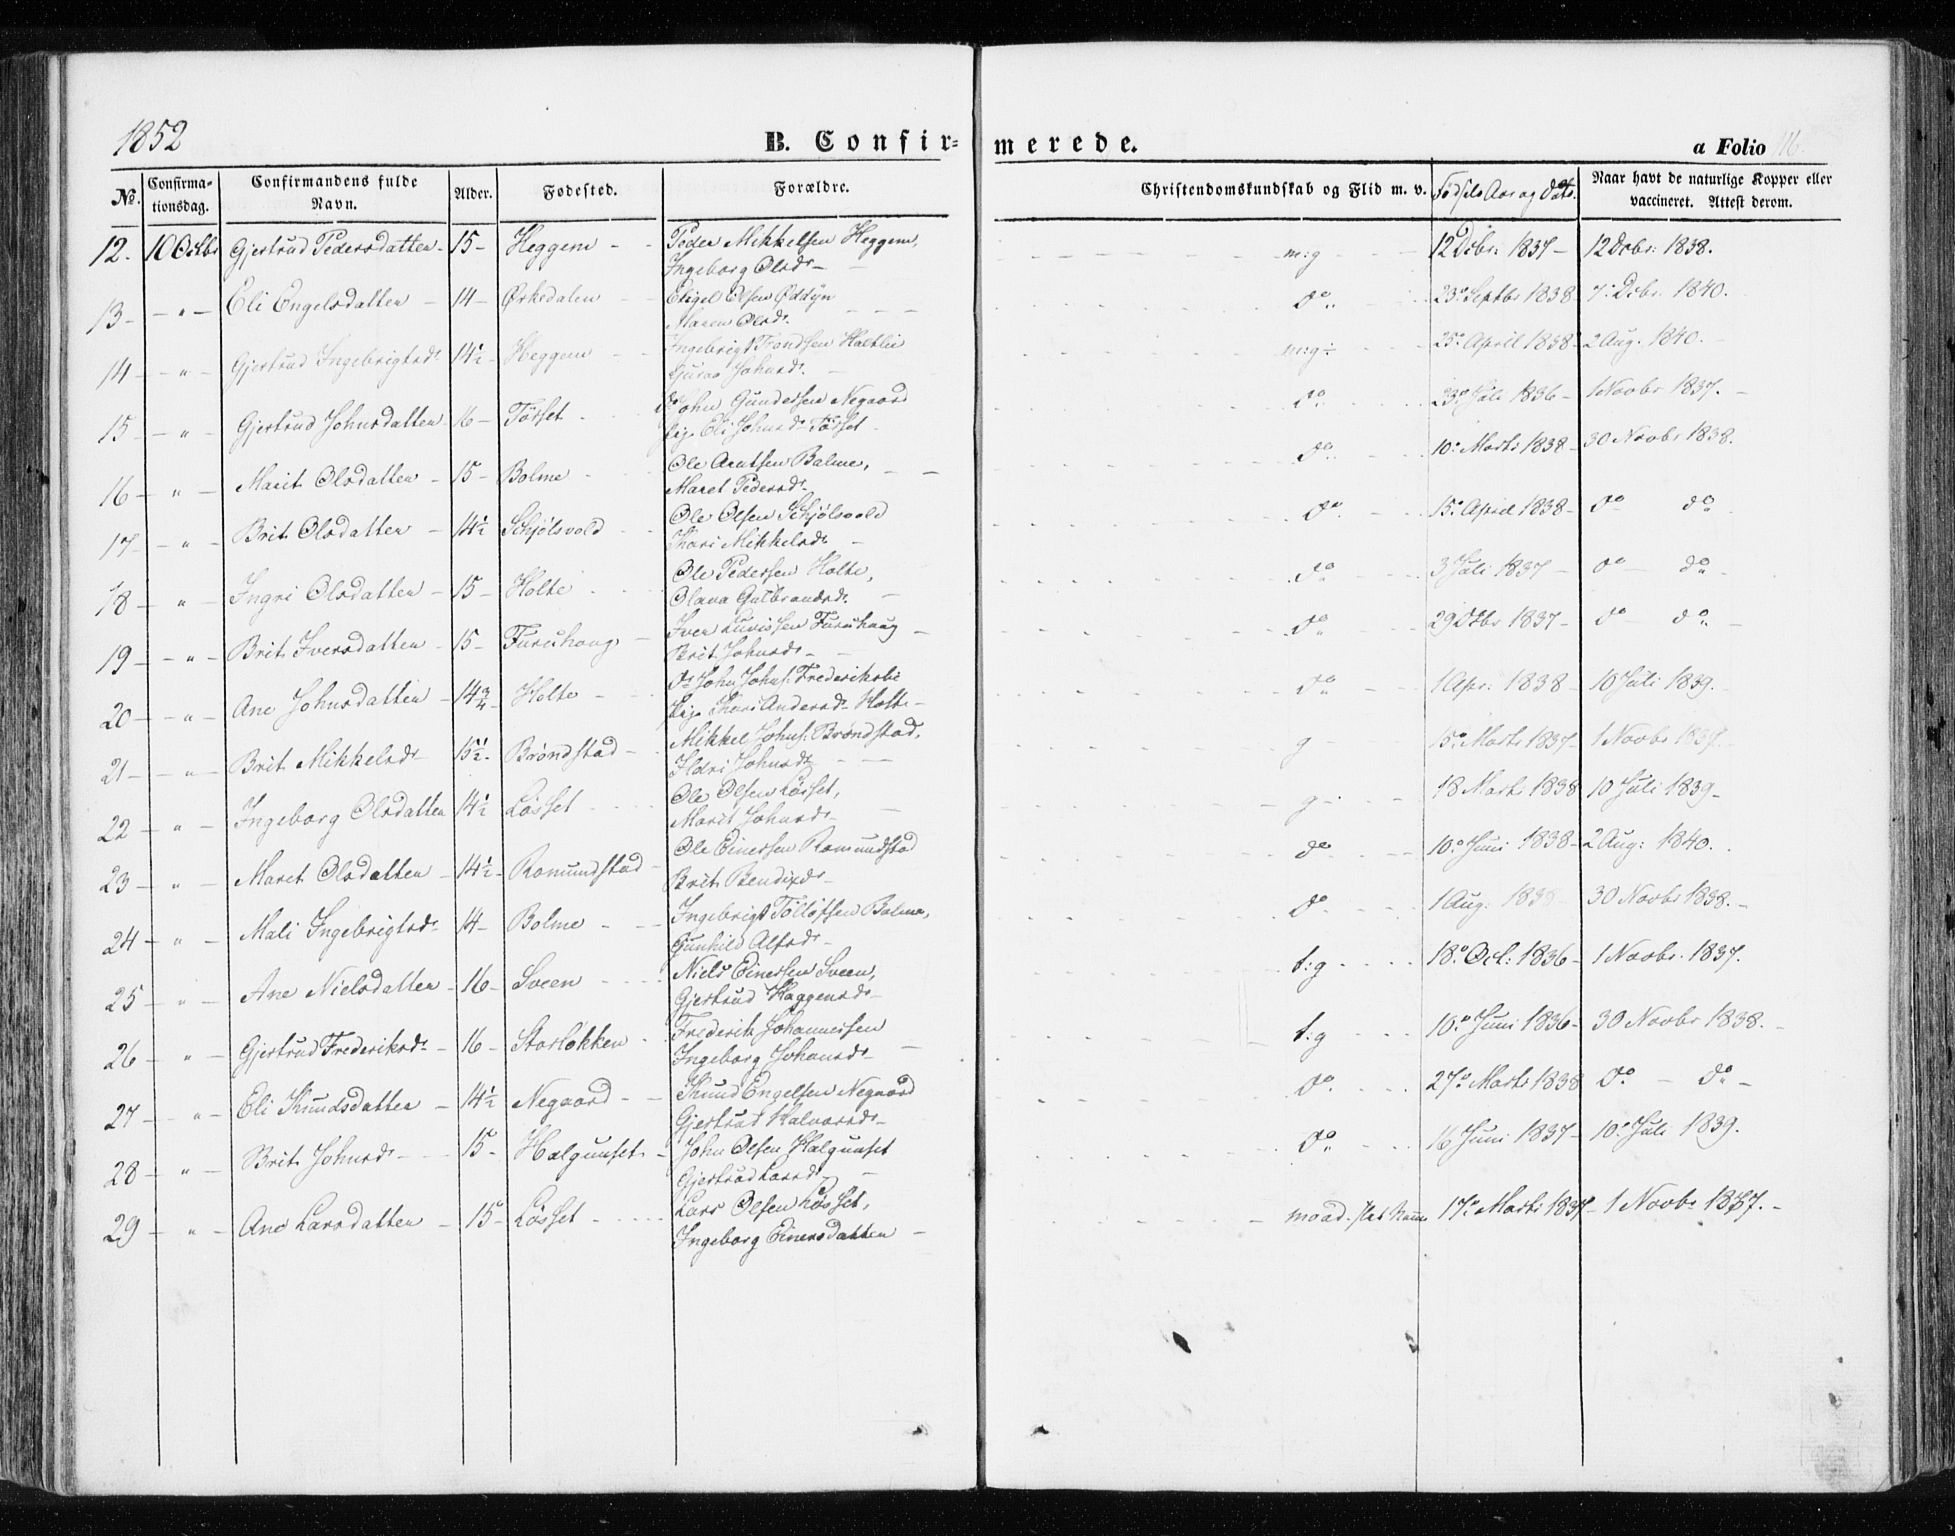 1852 B. Confir= merede. a Folio 116.
No. Confirmationsdag. Confirmandens fulde Navn. Alder. Fødested. Forældre. Christendomskundskab og Flid m. v. Fødsels Aar og Dato. Naar havt de naturlige Kopper eller vaccineret. Attest derom.
12. 10 Octbr Gjertrud Pedersdatter - 15 - Heggem - - Peder Mikkelsen Heggem, m:g 12 Dcbr: 1837 - 12 Dcbr: 1838.
Ingeborg Olsdr -
13 - " - Eli Engelsdatter - 14 - Ørkedalen - Engel Olsen Oddyn do. 23de Septbr 1838 - 7de Dcbr. 1840.
Maren Olsdr.
14 - " - Gjertrud Ingebrigtsdr 14½ - Heggem - Ingebrigt Trondsen m:g÷ 25de April 1838 - 2 Aug. 1840. -
Guroe Johnsdr. -
15 - " - Gjertrud Johnsdatter - 16 - Tørset - John Gundersen Negaard do. 23de Juli 1836 - 1 Novbr 1837. -
Pige Eli Johnsdr Tørset -
16 - " - Marit Olsdatter - 15 - Bolme - Ole Arntsen Bolme, - - do. 10de Marts 1838 - 30 Novbr 1838.
Maret Pedersdr -
17 - " - Brit Olsdatter - 14½ Schjølsvold - Ole Olsen Schjølsvold do. 15de April 1838 - do do
Kari Mikkelsdr -
18 - " - Ingri Olsdatter - 15 - Holte - Ole Pedersen Holte, do 3 Juli 1837 - do - do -
Olava Gulbrandsdr. -
19 - " - Brit Iversdatter - 15 - Furuhaug - Iver Furuhaug - do 29 1837 - do - do. -
Brit Johnsdr -
20 - " - Ane Johnsdatter - 14¾ - Holte - John Johns. do 1 Apr: 1838 - 10 Juli 1839.
Pige Kari Andersdr Holte -
21 - " - Brit Mikkelsdr - 15½ - Brøndstad - Mikkel Johns. Brøndstad, g - 15de Marts 1837 - 1 Novbr 1837.
Ildri Johnsdr - -
22 - " - Ingeborg Olsdatter 14½ Løsset - Ole Olsen Løsset, g - 18 Marts 1838 10 Juli 1839 -
Marit Johnsdr - -
23 - " - Maret Olsdatter - 14½ - Romundstad - Ole Einersen Romundstad do 10de Juni 1838 - 2 Aug: 1840.
Brit Bendixdr -
24 - " - Mali Ingebrigtsdr 14 - Bolme - Ingebrigt Bolme, do 1 Aug. 1838 30 Novbr 1838. -
Gunhild Alfsdr -
25 - " - Ane Nielsdatter - 16 - Sveen - Niels Einersen Sveen, t:g 18de Oct: 1836 - 1 Novbr. 1837.
Gjertrud Haggensdr -
26 - " - Gjertrud Frederiksdr - 16 - Storløkken - Frederik Johannessen t:g 10de Juni 1836 - 30 Novbr 1838. -
Ingeborg Johansdr - -
27 - " - Eli Knudsdatter - 14½ - Negaard - - Knud Engelsen Negaard do. 27de Marts 1838 do. - do -
Gjertrud Halvorsdr -
28 - " - Brit Johnsdr - 15 - Halgunset - John Olsen Halgunset do. 16 Juni 1837 - 10de Juli 1839.
Gjertrud Larsdr -
29 - " - Ane Larsdatter - 15 - Løsset - Lars Olsen Løsset, maad. 17de Marts 1837 - 1 Novbr 1837. -
Ingeborg Einersdatter -